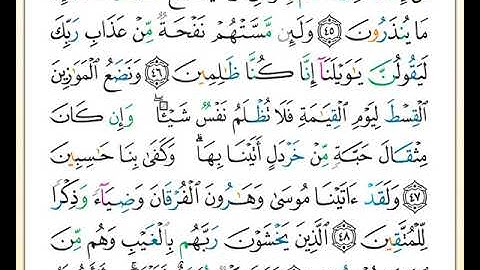 مَا يُنذَرُونَ ﴿٤٥﴾ وَلَئِن مَّسَّتْهُمْ نَفْحَةٌ مِّنْ عَذَابِ رَبِّكَ
لَيَقُولُنَّ يَـٰوَيْلَنَآ إِنَّا كُنَّا ظَـٰلِمِينَ ﴿٤٦﴾ وَنَضَعُ ٱلْمَوَٰزِينَ
ٱلْقِسْطَ لِيَوْمِ ٱلْقِيَـٰمَةِ فَلَا تُظْلَمُ نَفْسٌ شَيْـًٔا ۖ وَإِن كَانَ
مِثْقَالَ حَبَّةٍ مِّنْ خَرْدَلٍ أَتَيْنَا بِهَا ۗ وَكَفَىٰ بِنَا حَـٰسِبِينَ
﴿٤٧﴾ وَلَقَدْ ءَاتَيْنَا مُوسَىٰ وَهَـٰرُونَ ٱلْفُرْقَانَ وَضِيَآءً وَذِكْرًا
لِّلْمُتَّقِينَ ﴿٤٨﴾ ٱلَّذِينَ يَخْشَوْنَ رَبَّهُم بِٱلْغَيْبِ وَهُم مِّنَ